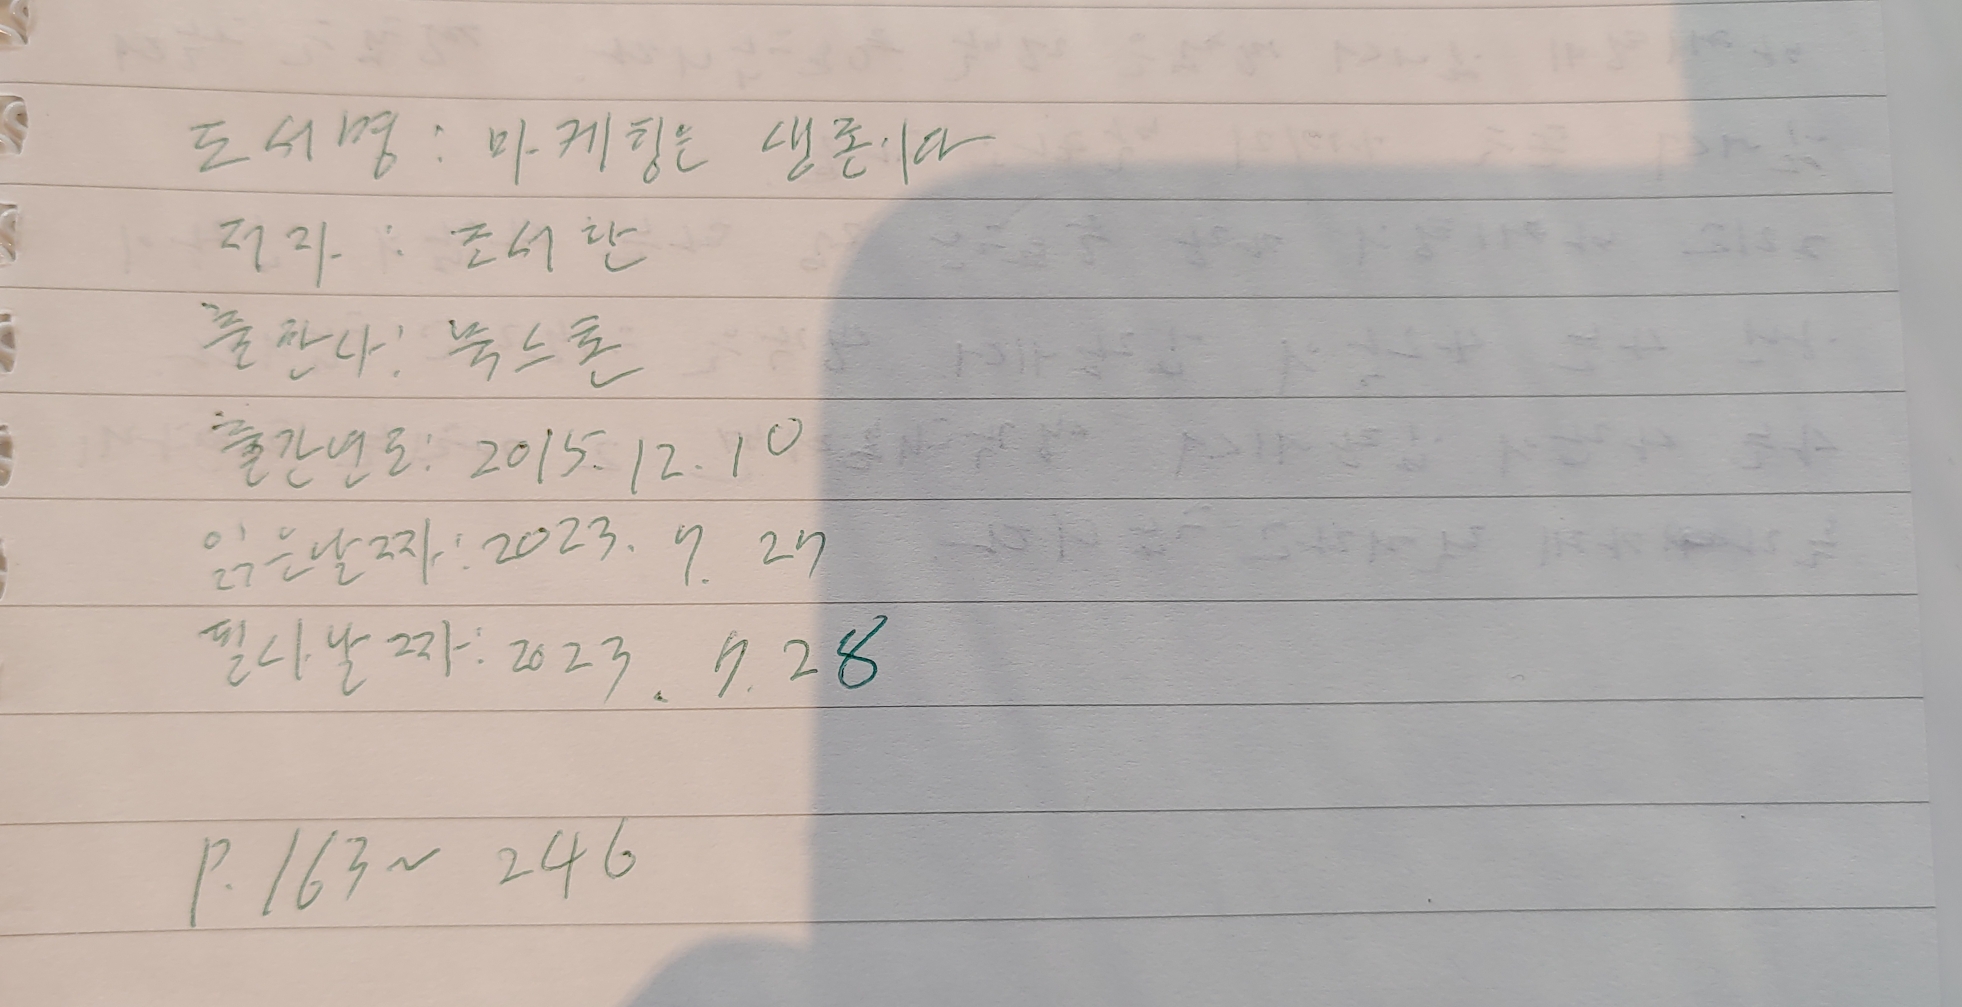 도서명: 마케팅은 생존이다
저자: 조서환
출판사: 북스톤
출간년도: 2015.12.10
읽은날짜: 2023. 7. 27
필사날짜: 2023. 7. 28
P. 163~ 246